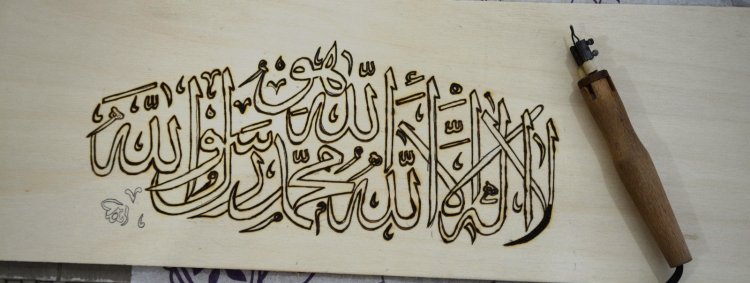 الله هو
لا إله إلا الله محمد رسول الله